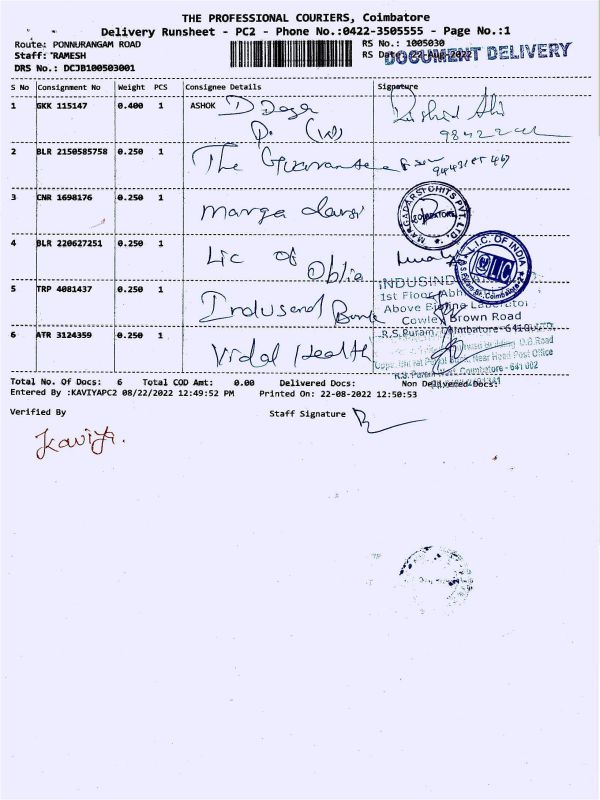 THE PROFESSIONAL COURIERS, Coimbatore
Delivery Runsheet - PC2 - Phone No.:0422-3505555 - Page No.:1
Route: PONNURANGAM ROAD
RS No.: 1005030
Staff: RAMESH
RS Date: 22-Aug-2022
DOCUMENT DELIVERY
DRS No.: DCJB100503001
S No Consignment No Weight PCS Consignee Details Signature
1 GKK 115147 0.400 1 ASHOK D Daga
P. (W)
2 BLR 2150585758 0.250 1 The Guarantee
3 CNR 1698176 0.250 1 marga darsi
MARGADARSI CHITS PVT. LTD.
COIMBATORE
4 BLR 220627251 0.250 1 Lic of Oblia
L.I.C. OF INDIA
LIC
5 TRP 4081437 0.250 1 Indusend Bank
INDUSIND
1st Floor, Abh
Above Bioline Laboratoi
Cowley Brown Road
R.S.Puram, Coimbatore-641002
6 ATR 3124359 0.250 1 Vidal Health
Building, D.B.Road
Near Head Post Office
Coimbatore - 641 002
Total No. Of Docs: 6 Total COD Amt: 0.00 Delivered Docs: Non Delivered Docs:
Entered By :KAVIYAPC2 08/22/2022 12:49:52 PM Printed On: 22-08-2022 12:50:53
Verified By
Staff Signature
Kaviya.